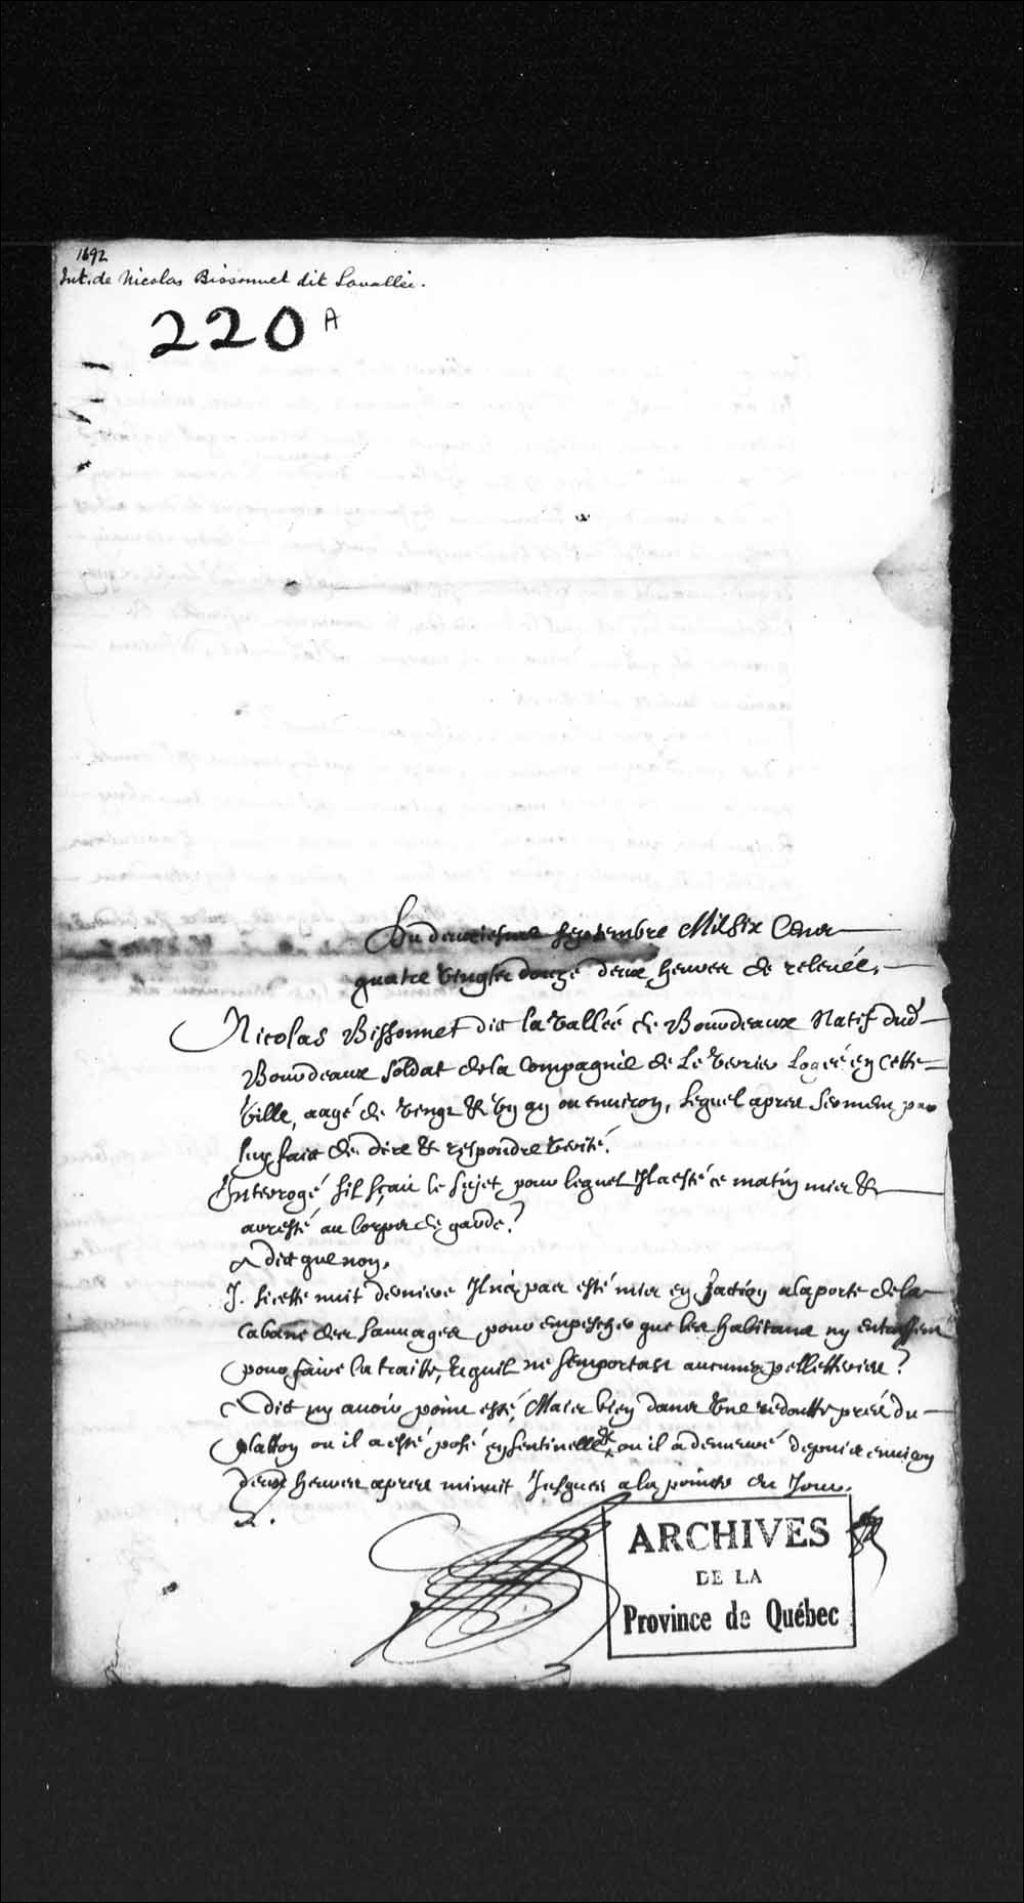 1692
Int. de Nicolas Bissonnet dit Lavallée.
220 A
Du deuxiesme Septembre Mil Six Cens
quatre Vingts douze deux heures de relevée.
Nicolas Bissonnet dit la Vallée de Bourdeaux Natif dud
Bourdeaux soldat de la Compagnie de Le Verrier Logé en Cette
Ville, aagé de Vingt & Un an ou environ, Lequel apres serment par
luy fait de dire & respondre Verité.
Interrogé s'il sçait le sujet pour lequel Il a esté ce matin mis &
arresté au Corps de garde?
A dit que non.
I. Si cette nuit derniere Il n'a pas esté mis en faction a la porte de la
Cabane des Sauvages pour empescher que les habitans ny entrassent
pour faire la traitte, & quil ne s'emportast aucunes pelletteries?
A dit ny avoir point esté, Mais bien dans Une redoutte prés du
platton ou il a esté posé en sentinelle, & ou il a demeuré depuis environ
deux heures apres minuit Jusques a la pointe du Jour.
ARCHIVES
DE LA
Province de Québec